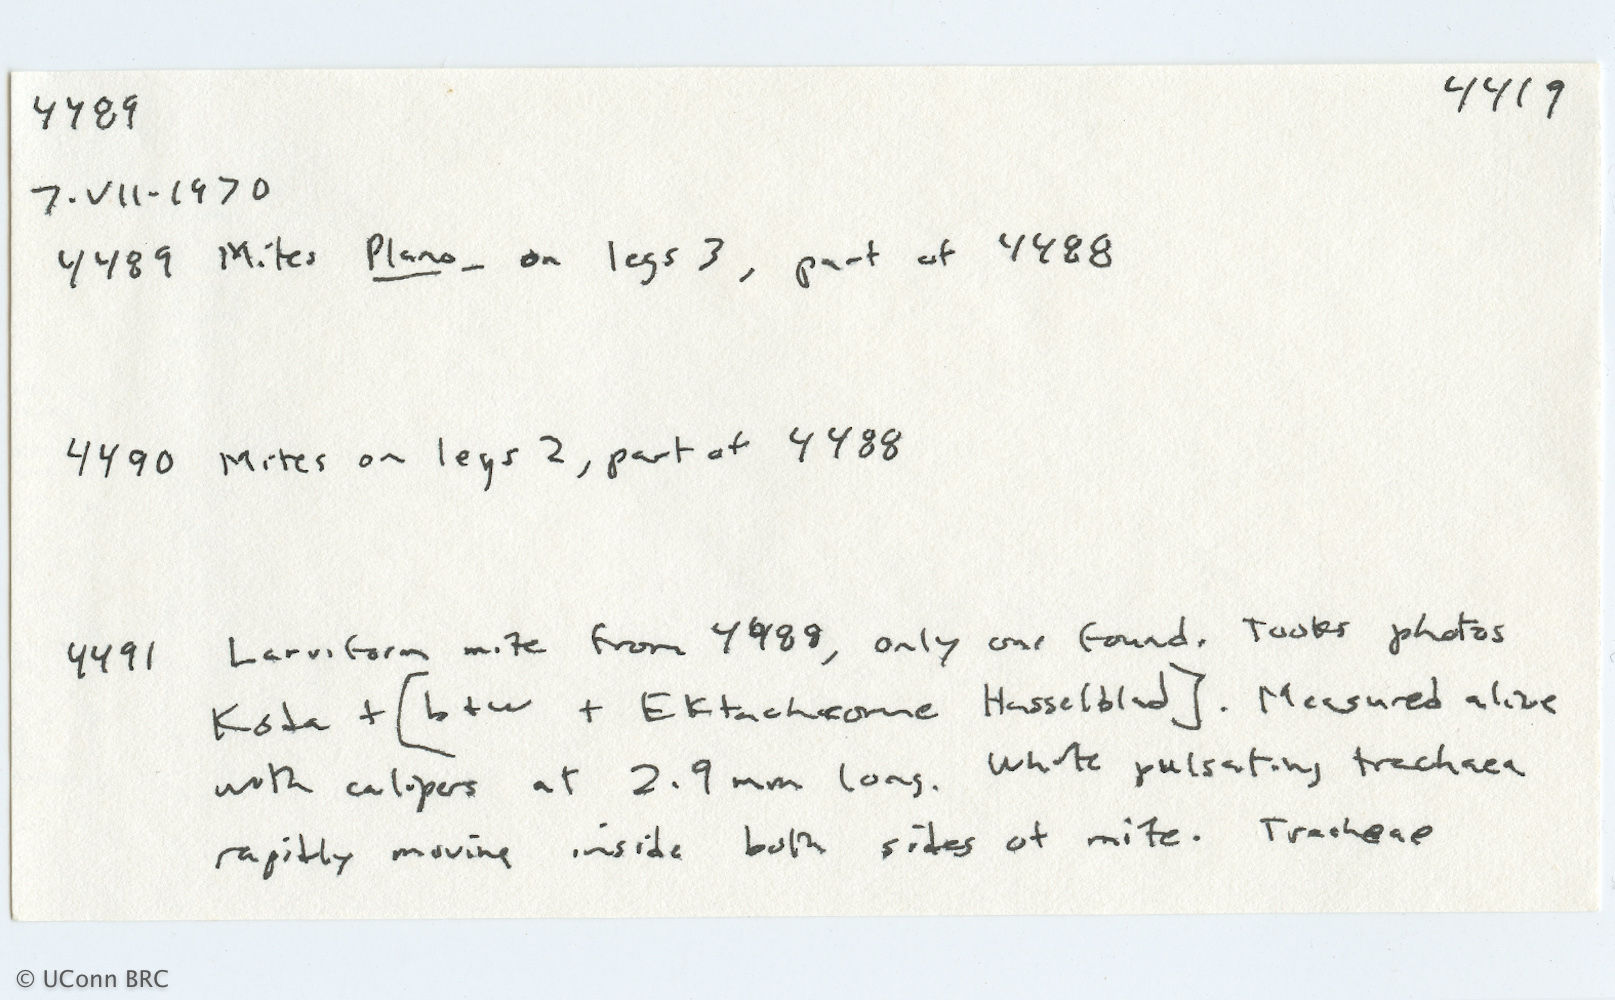 4489
4419
7-VII-1970
4489 Mites Plano- on legs 3, part of 4488
4490 Mites on legs 2, part of 4488
4491 Larviform mite from 4488, only one found. Tooks photos
Koda + [b+w + Ektachrome Hasselblad]. Measured alive
with calipers at 2.9 mm long. White pulsating trachaea
rapidly moving inside both sides of mite. Tracheae
© UConn BRC